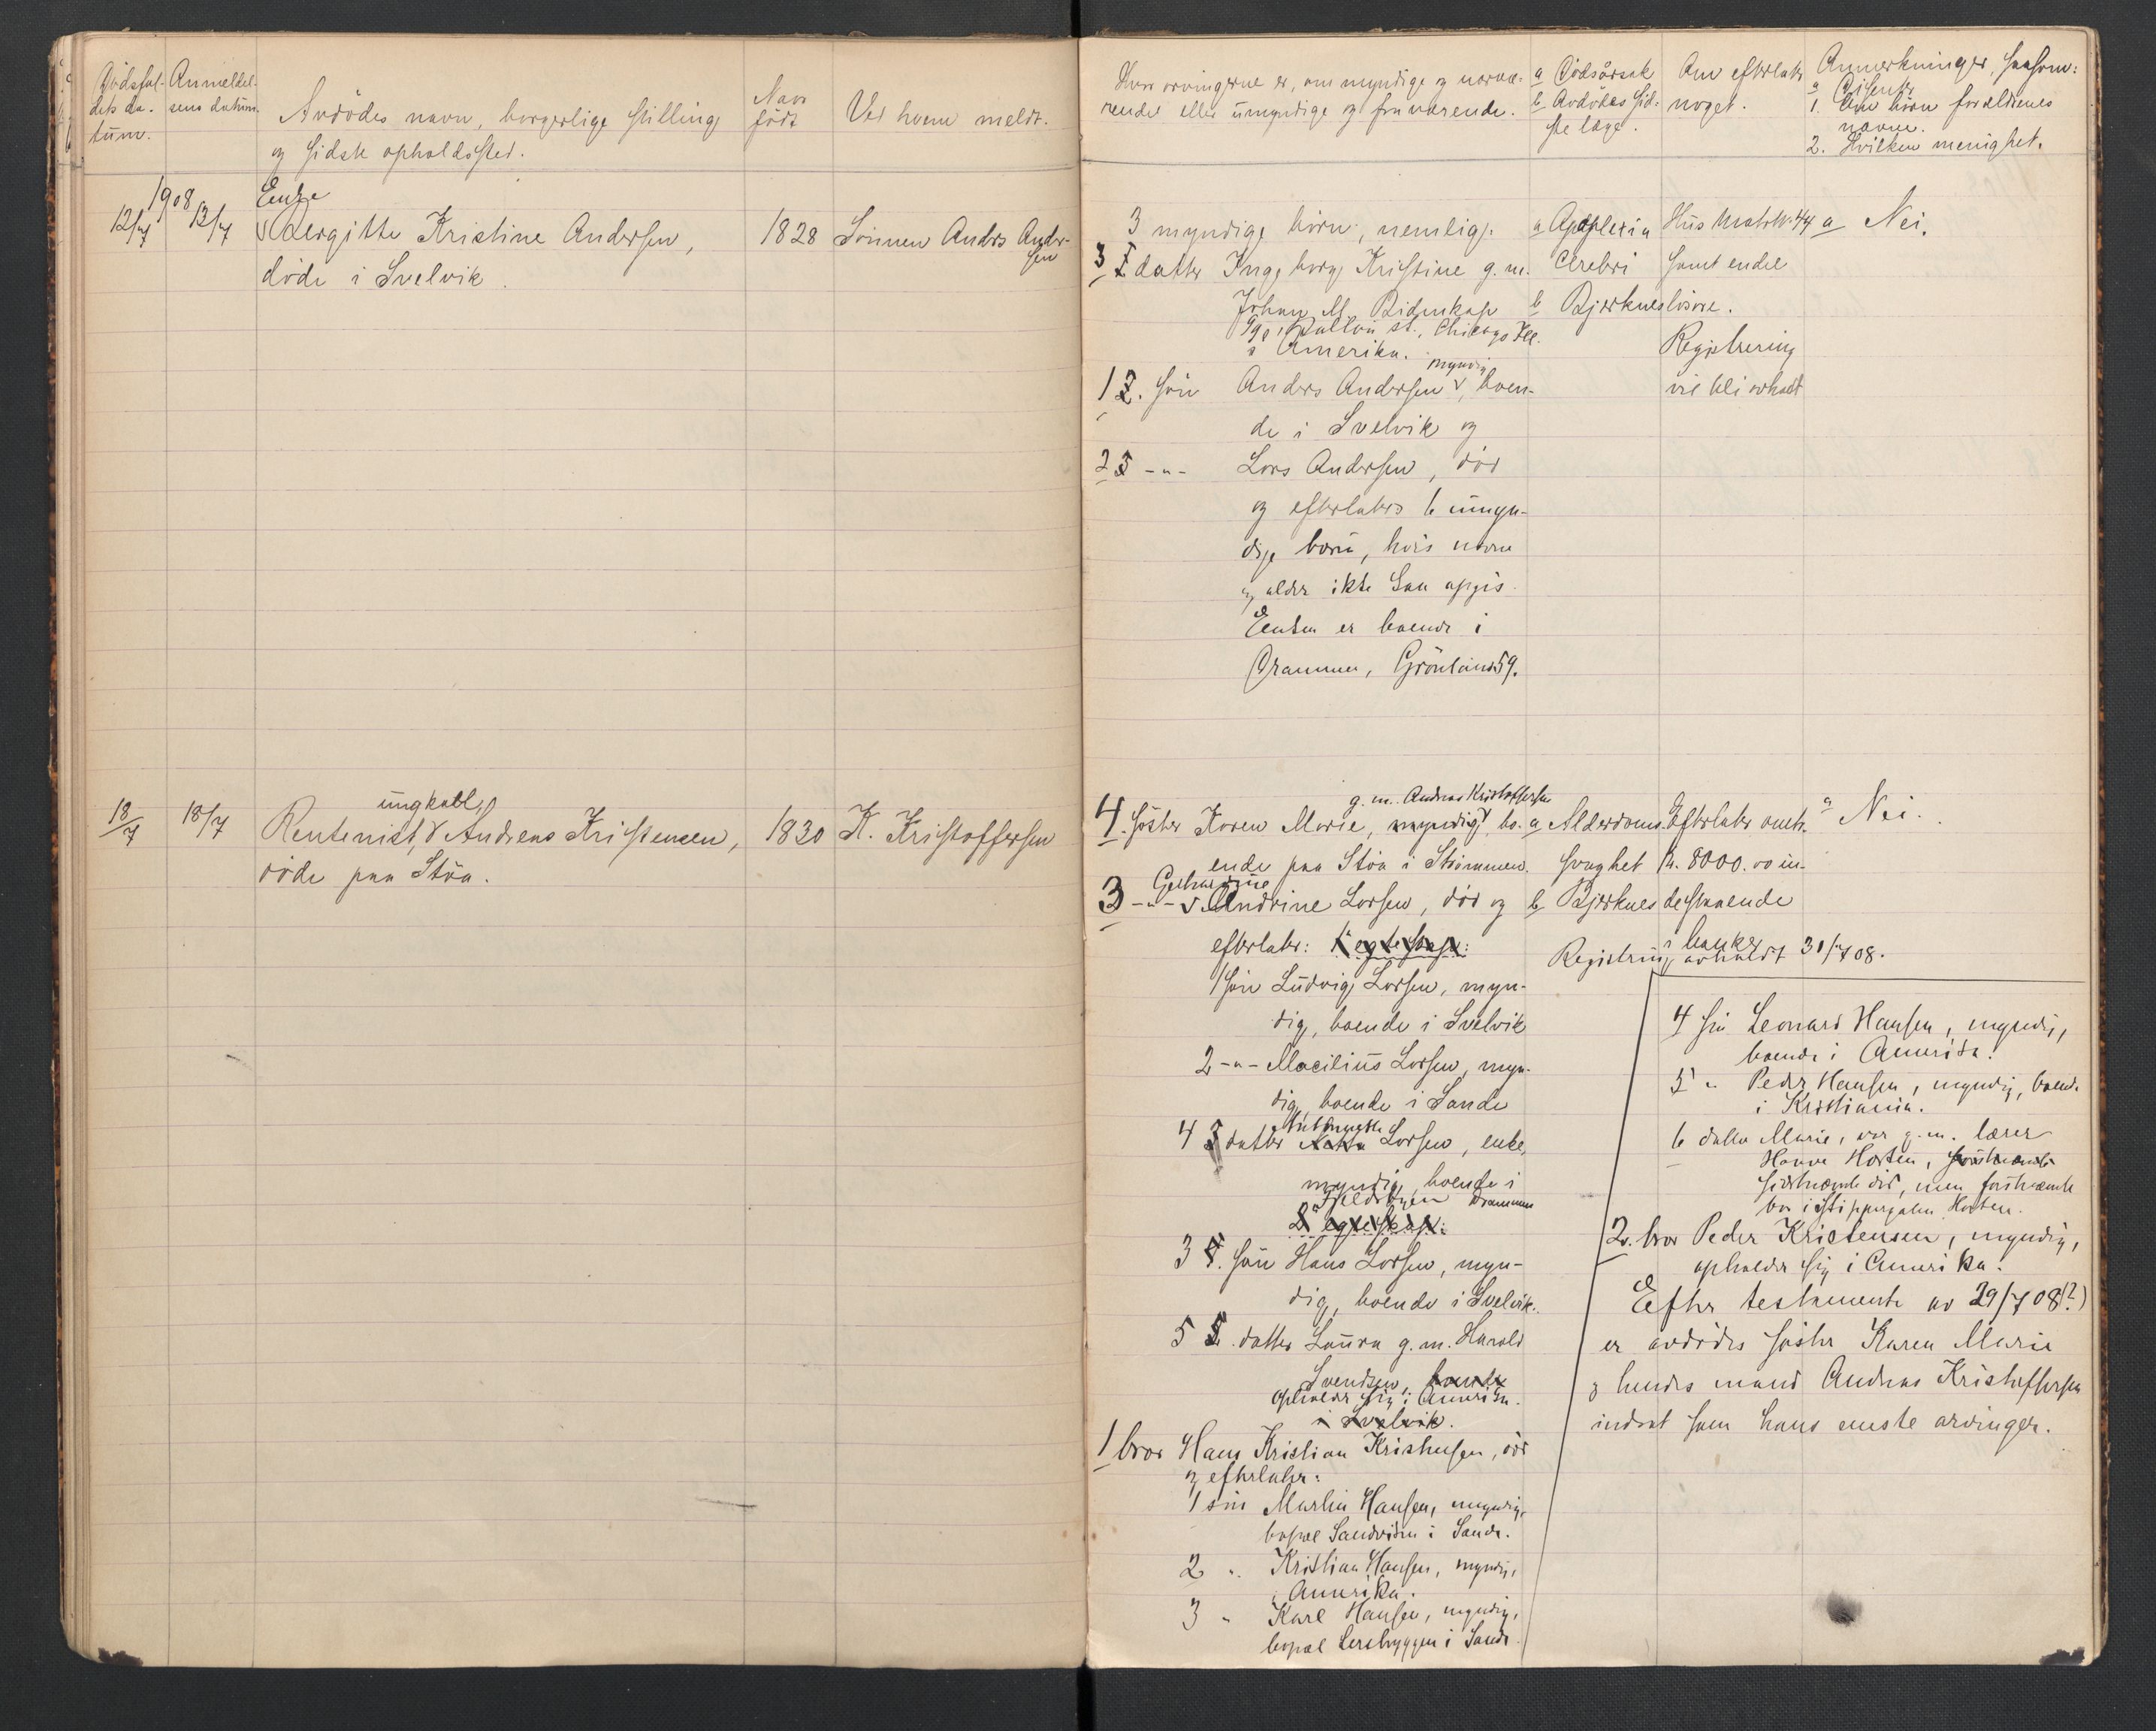 Dødsfal-
dets da-
tum.
Anmeldel-
sens datum.
Avdødes navn, borgerlige stilling
og sidste opholdssted.
Naar
født
Ved hvem meldt.
Hvor arvingerne er, om myndige og nærvæ-
rende eller umyndige og fraværende.
a Dødsårsak
b Avdødes sid-
ste læge.
Om efterlatt
noget.
Anmerkninger, saasom:
a Dissent.
1. Om børn forældrenes
navne.
2. Hvilken menighet.
1908
12/7
13/7
Enke
Bergitte Kristine Andersen,
døde i Svelvik.
1828
Sønnen Anders Ander-
sen
3 myndige børn, nemlig:
3 1 datter Ingeborg Kristine g. m.
Johan M. Ridenkap
Fulton st., Chicago Ill.
i Amerika.
myndig
1 2. søn Anders Andersen, boen-
de i Svelvik og
2 3 -"- Lars Andersen, død
og efterlater 6 umyn-
dige børn, hvis navne
og alder ikke kan opgis.
Enken er boende i
Drammen, Grønland 59.
a Apoplexia
Cerebri
b Bjerknes
Hus Matr. N. 44
samt endel
løsøre.
Registrering
vil bli avholdt
a Nei.
18/7
18/7
ungkarl
Rentenist, Andreas Kristensen,
døde paa Støa.
1830
K. Kristoffersen
g. m. Andreas Kristoffersen
4. søster Karen Marie, myndig, bo-
ende paa Støa i Strømmen.
Gerhardine
3 -"- Andrine Larsen, død og
efterlater: 1 egteskap:
1 søn Ludvig Larsen, myn-
dig, boende i Svelvik
2 -"- Macilius Larsen, myn-
dig, boende i Sande
4 3 datter Larsen, enke,
myndig, boende i
Drammen
2 egteskap:
3 4. søn Hans Larsen, myn-
dig, boende i Svelvik.
5 5. datter Laura g. m. Harald
Svendsen, boende
opholder sig i Amerika.
i Svelvik.
1 bror Hans Kristian Kristensen, død
og efterlater:
1 søn Martin Hansen, myndig,
bopæl Sandviken i Sande.
2 " Kristian Hansen, myndig,
Amerika.
3 " Karl Hansen, myndig,
bopæl Lersbryggen i Sande.
a Alderdoms-
svaghet
b Bjerknes
Efterlater omtr.
kr. 8000.00 in-
destaaende
i banker
Registrering avholdt 31/7 08.
a Nei.
4 søn Leonard Hansen, myndig,
boende i Amerika.
5 " Peder Hansen, myndig, boende
i Kristiania.
6 datter Marie, var g. m. lærer
Horten,
sidstnævnte død, men førstnævnte
bor i Horten.
2. bror Peder Kristensen, myndig,
opholder sig i Amerika.
Efter testamente av 29/7 08 (?)
er avdødes søster Karen Marie
og hendes mand Andreas Kristoffersen
indsat som hans eneste arvinger.